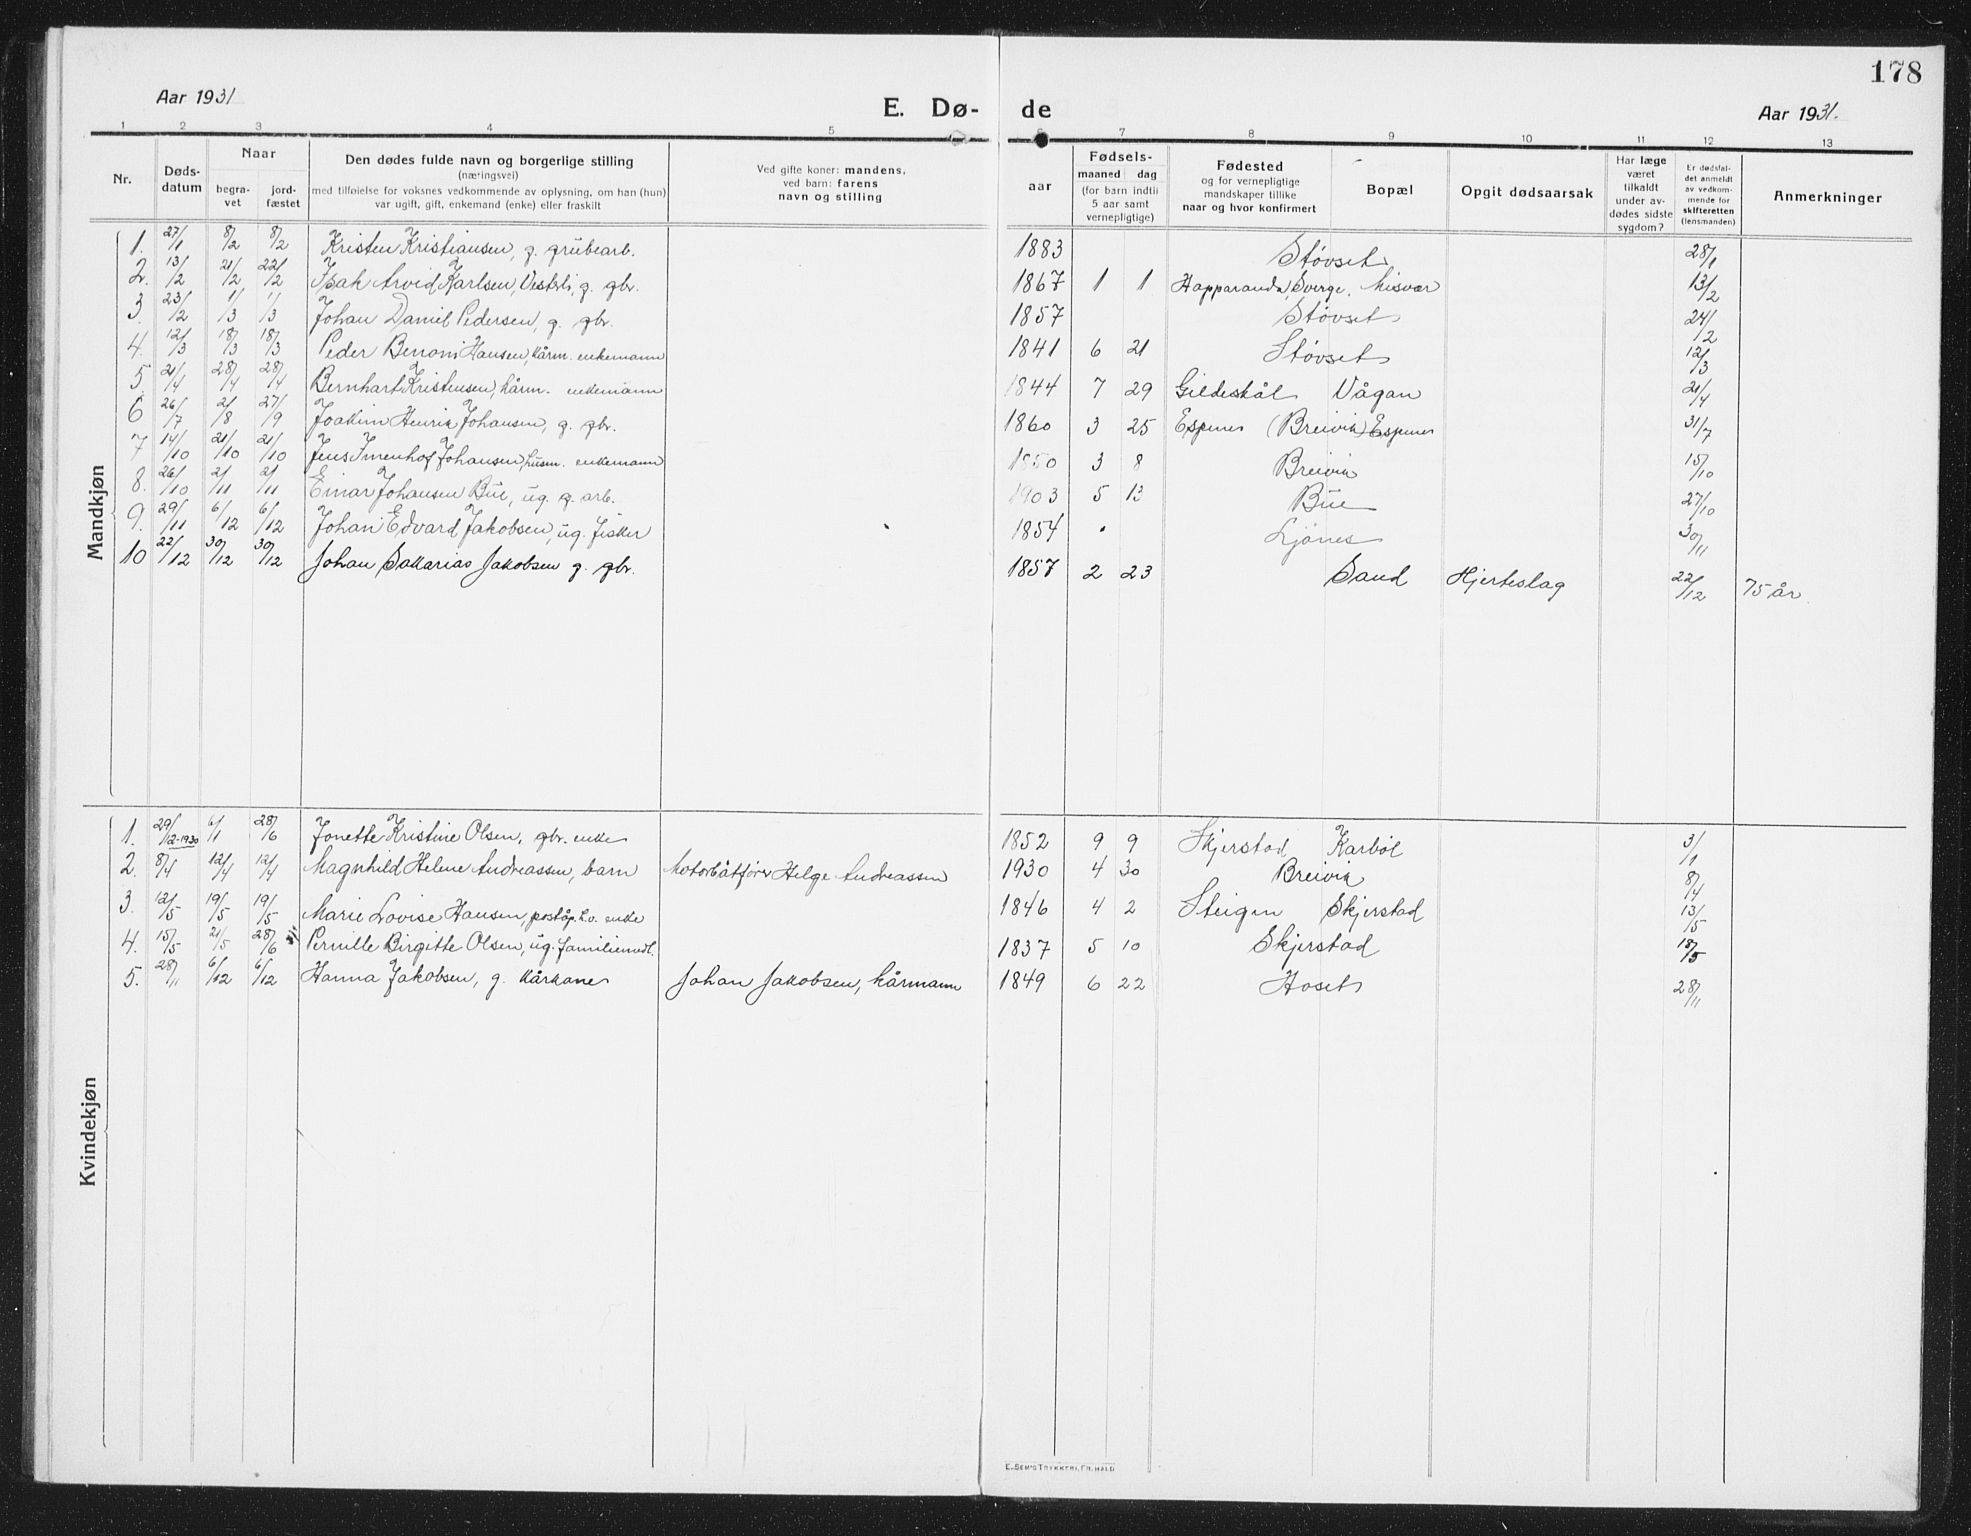 178
Aar 1931
E. Dø- de
Aar 1931.
1 2 3 4 5 6 7 8 9 10 11 12 13
Nr.
Døds-
datum
Naar
begra-
vet
jord-
fæstet
Den dødes fulde navn og borgerlige stilling
(næringsvei)
med tilføielse for voksnes vedkommende av oplysning, om han (hun)
var ugift, gift, enkemand (enke) eller fraskilt
Ved gifte koner: mandens,
ved barn: farens
navn og stilling
Fødsels-
aar
maaned dag
(for barn indtil
5 aar samt
vernepligtige)
Fødested
og for vernepligtige
mandskaper tillike
naar og hvor konfirmert
Bopæl
Opgit dødsaarsak
Har læge
været
tilkaldt
under av-
dødes sidste
sygdom?
Er dødsfal-
det anmeldt
av vedkom-
mende for
skifteretten
(lensmanden)
Anmerkninger
Mandkjøn
1. 27/1 8/2 8/2 Kristen Kristiansen, g. grubearb. 1883 Støvset 28/1
2. 13/2 21/2 22/2 Isak Arvid Karlsen, Vesterli, g. gbr. 1867 1 1 Happaranda, Sverge. Misvær 13/2
3. 23/2 1/3 1/3 Johan Daniel Pedersen, g. gbr. 1857 Støvset 24/2
4. 12/3 18/3 18/3 Peder Benoni Hansen, kårm. enkemann 1841 6 21 Støvset 12/3
5. 21/4 28/4 28/4 Bernhart Kristensen, kårm. enkemann 1844 7 29 Gildeskål Vågan 21/4
6 26/7 2/8 27/9 Joakim Henrik Johansen, g. gbr. 1860 3 25 Espenes (Breivik) Espenes 31/7
7 14/10 21/10 21/10 Jens Imenhof Johansen, husm. enkemann 1850 3 8 Breivik 15/10
8. 26/10 2/11 2/11 Einar Johansen Bue, ug. g. arb. 1903 5 13 Bue 27/10
9. 29/11 6/12 6/12 Johan Edvard Jakobsen, ug. fisker 1854 Ljønes 30/11
10 22/12 30/12 30/12 Johan Sakarias Jakobsen g. gbr. 1857 2 23 Sand Hjerteslag 22/12 75 år.
Kvindekjøn
1. 29/12-1930 6/1 28/6 Jonette Kristine Olsen, gbr. enke 1852 9 9 Skjerstad Karbøl 3/1
2. 8/4 12/4 12/4 Magnhild Helene Andreassen, barn Motorbåtfører Helge Andreassen 1930 4 30 Breivik 8/4
3. 12/5 19/5 19/5 Marie Lovise Hansen, poståp. h.v. enke 1846 4 2 Steigen Skjerstad 13/5
4. 15/5 21/5 28/6 Pernille Birgitte Olsen, ug. familiemedl. 1837 5 10 Skjerstad 18/5
5. 28/11 6/12 6/12 Hanna Jakobsen, g. kårkone Johan Jakobsen, kårmann 1849 6 22 Hoset 28/11
E. SEM'S TRYKKERI, FR.HALD